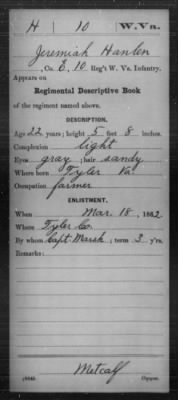 H | 10 | W. Va.
Jeremiah Hanlen
, Co. E, 10 Reg't W. Va. Infantry.
Appears on
Regimental Descriptive Book
of the regiment named above.
DESCRIPTION.
Age 22 years; height 5 feet 8 inches.
Complexion light
Eyes gray; hair sandy
Where born Tyler Va
Occupation farmer
ENLISTMENT.
When Mar. 18, 1862
Where Tyler Co.
By whom Capt. Marsh; term 3 y'rs.
Remarks:
Metcalf
Copyist.